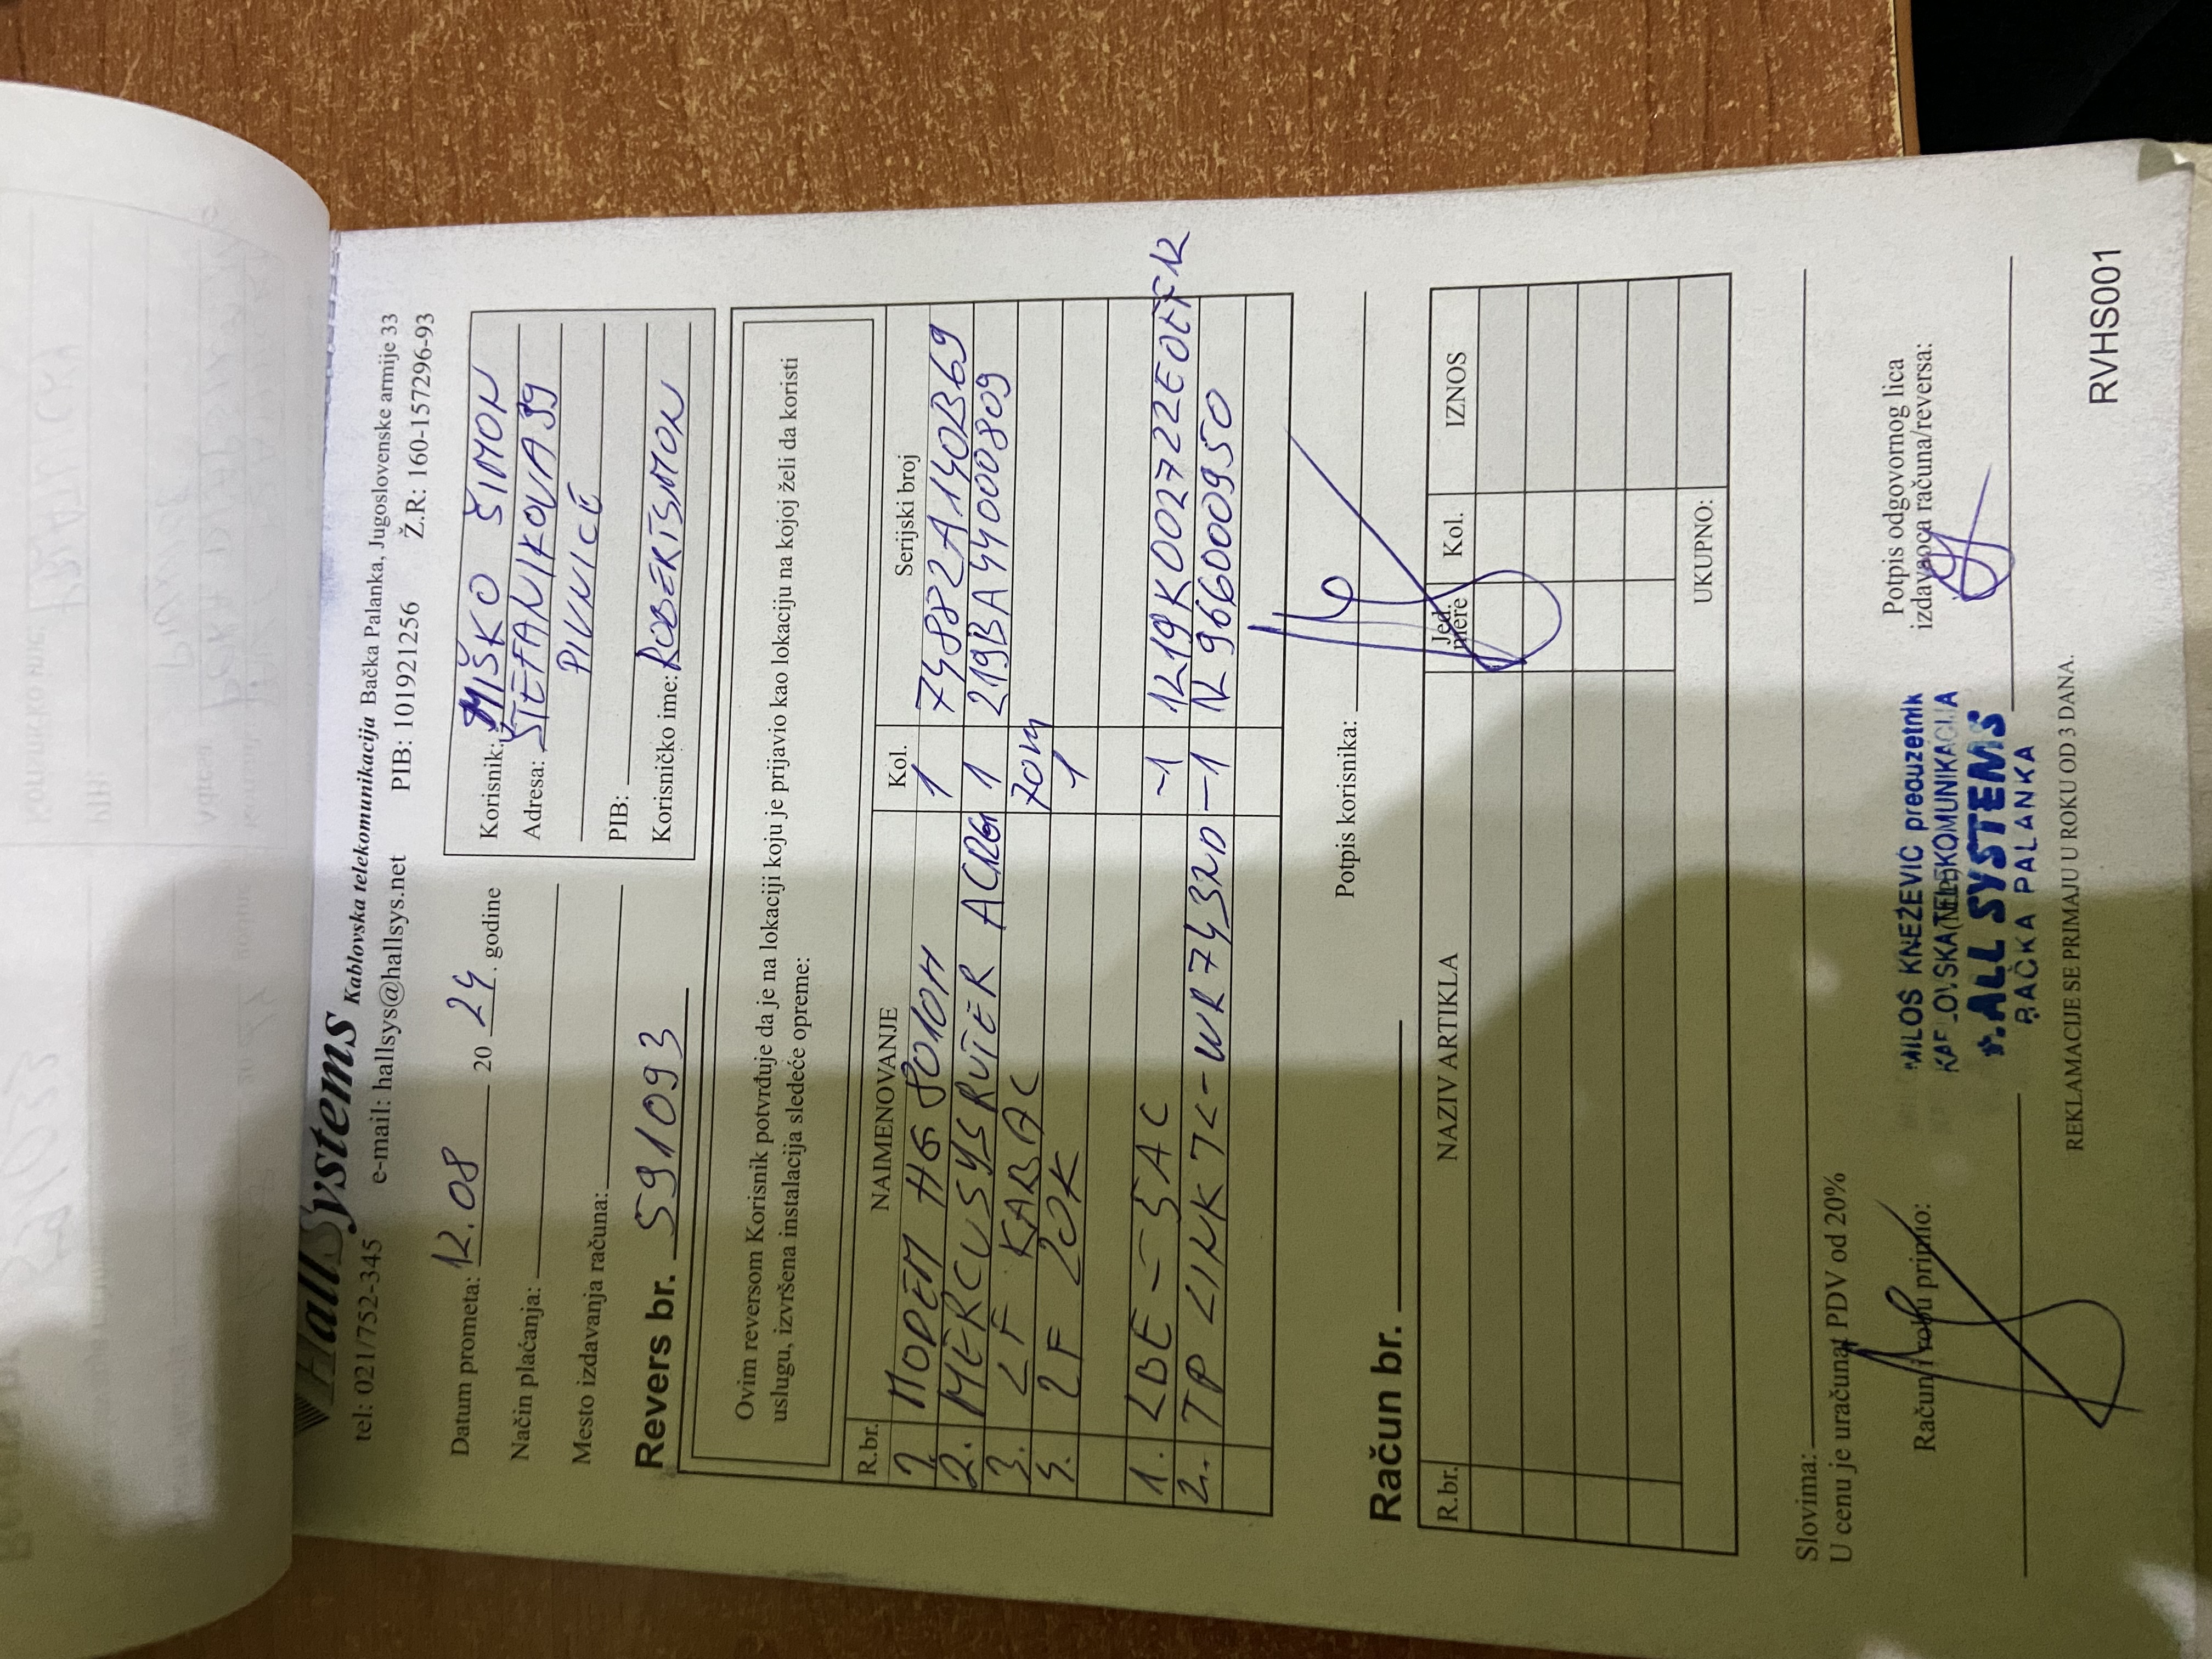 HallSystems Kablovska telekomunikacija Bačka Palanka, Jugoslovenske armije 33
tel: 021/752-345 e-mail: hallsys@hallsys.net PIB: 101921256 Ž.R: 160-157296-93
Datum prometa: 12.08 20 24. godine
Način plaćanja:
Mesto izdavanja računa:
Revers br. 591093
Korisnik: MIŠKO ŠIMON
Adresa: ŠTEFANIKOVA 99
PIVNICE
PIB:
Korisničko ime: ROBERTSMON
Ovim reversom Korisnik potvrđuje da je na lokaciji koju je prijavio kao lokaciju na kojoj želi da koristi
uslugu, izvršena instalacija sledeće opreme:
R.br. NAIMENOVANJE Kol. Serijski broj
1. MODEM HG8010H 1 74882A140B69
2. MERCUSYS RUTER AC12G 1 219BA44000809
3. LF KABAC 70m
4. 2F 20K 1
1. LBE-5AC -1 1219K002722E0EFF12
2. TP LINK TL-WR743ND -1 12966000950
Potpis korisnika:
Račun br.
R.br. NAZIV ARTIKLA Jed. mere Kol. IZNOS
UKUPNO:
Slovima:
U cenu je uračunat PDV od 20%
Račun i robu primio:
MILOŠ KNEŽEVIĆ preduzetnik
KABLOVSKA TELEKOMUNIKACIJA
HALL SYSTEMS
BAČKA PALANKA
Potpis odgovornog lica
izdavaoca računa/reversa:
REKLAMACIJE SE PRIMAJU U ROKU OD 3 DANA.
RVHS001